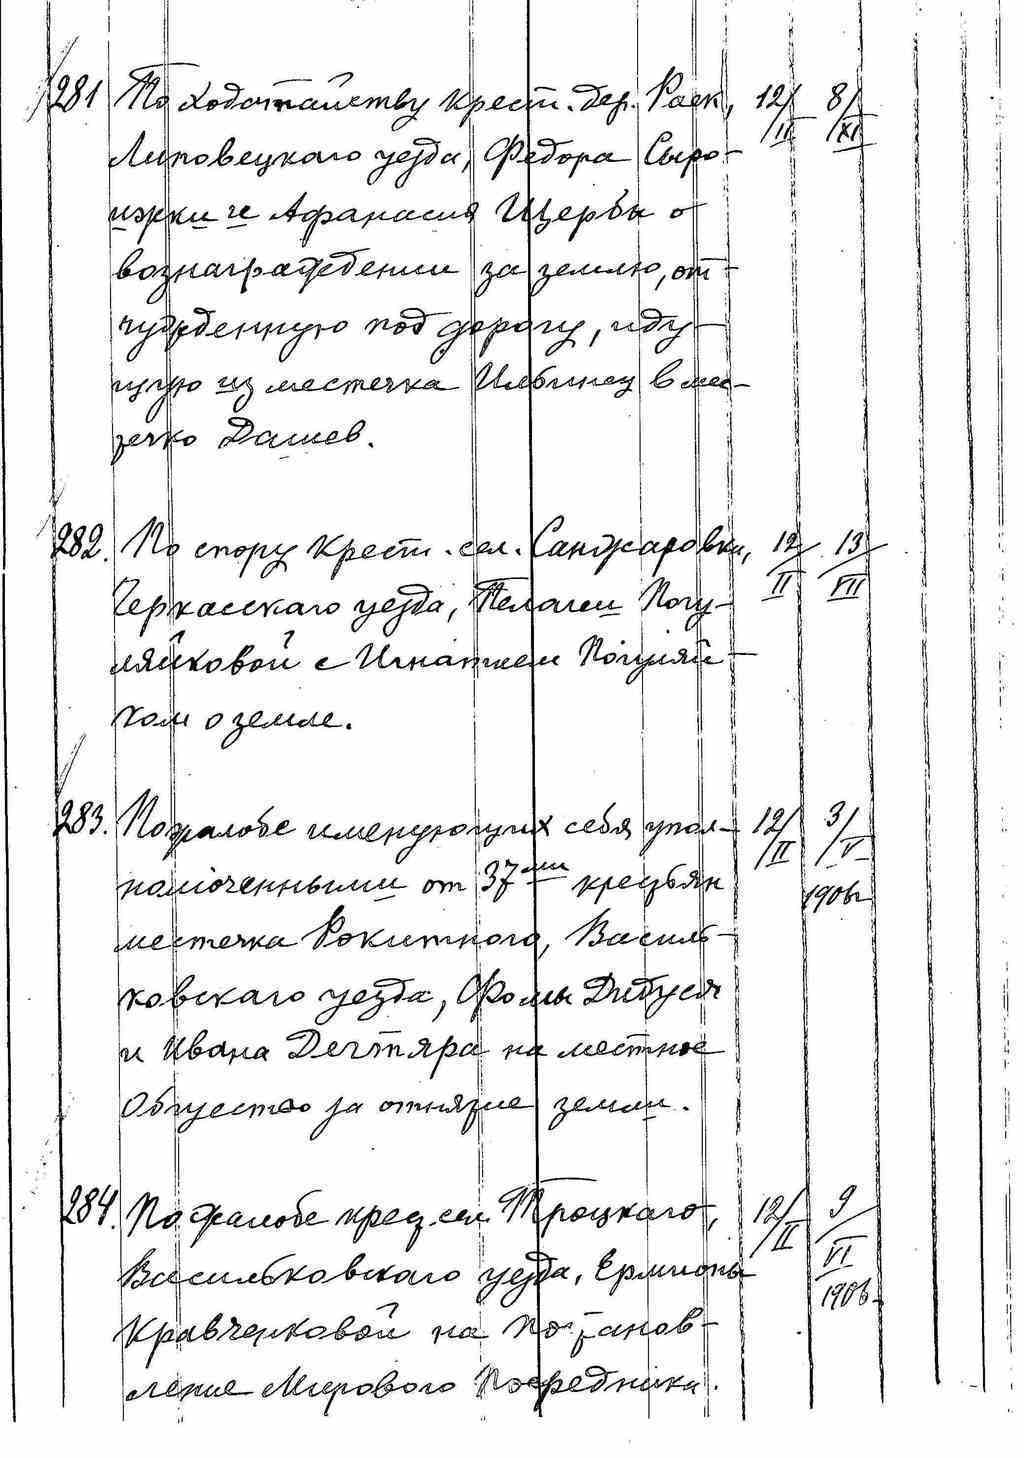 281 По ходатайству крест. дер. Раек, 12/II 8/XI
Липовецкаго уезда, Федора Сыро-
ижки и Афанасия Щербы о
вознаграждении за землю, от-
чужденную под дорогу, иду-
щую из местечка Ильинец в мес-
течко Дашев.
282. По спору крест. сел. Санжаровки, 12/II 13/VII
Черкасскаго уезда, Пелагеи Погу-
ляйковой с Игнатием Погуляй-
ком о земле.
283. По жалобе именующих себя упол- 12/II 3/V
номоченными от 37ми крестьян 1906г
местечка Рокитного, Василь-
ковскаго уезда, Фомы Дибуся
и Ивана Дегтяра на местное
Общество за отнятие земли.
284. По жалобе крест. сел. Троцкаго, 12/II 9/VI
Васильковскаго уезда, Ермионы 1906
Кравченковой на постанов-
ление Мирового Посредника.